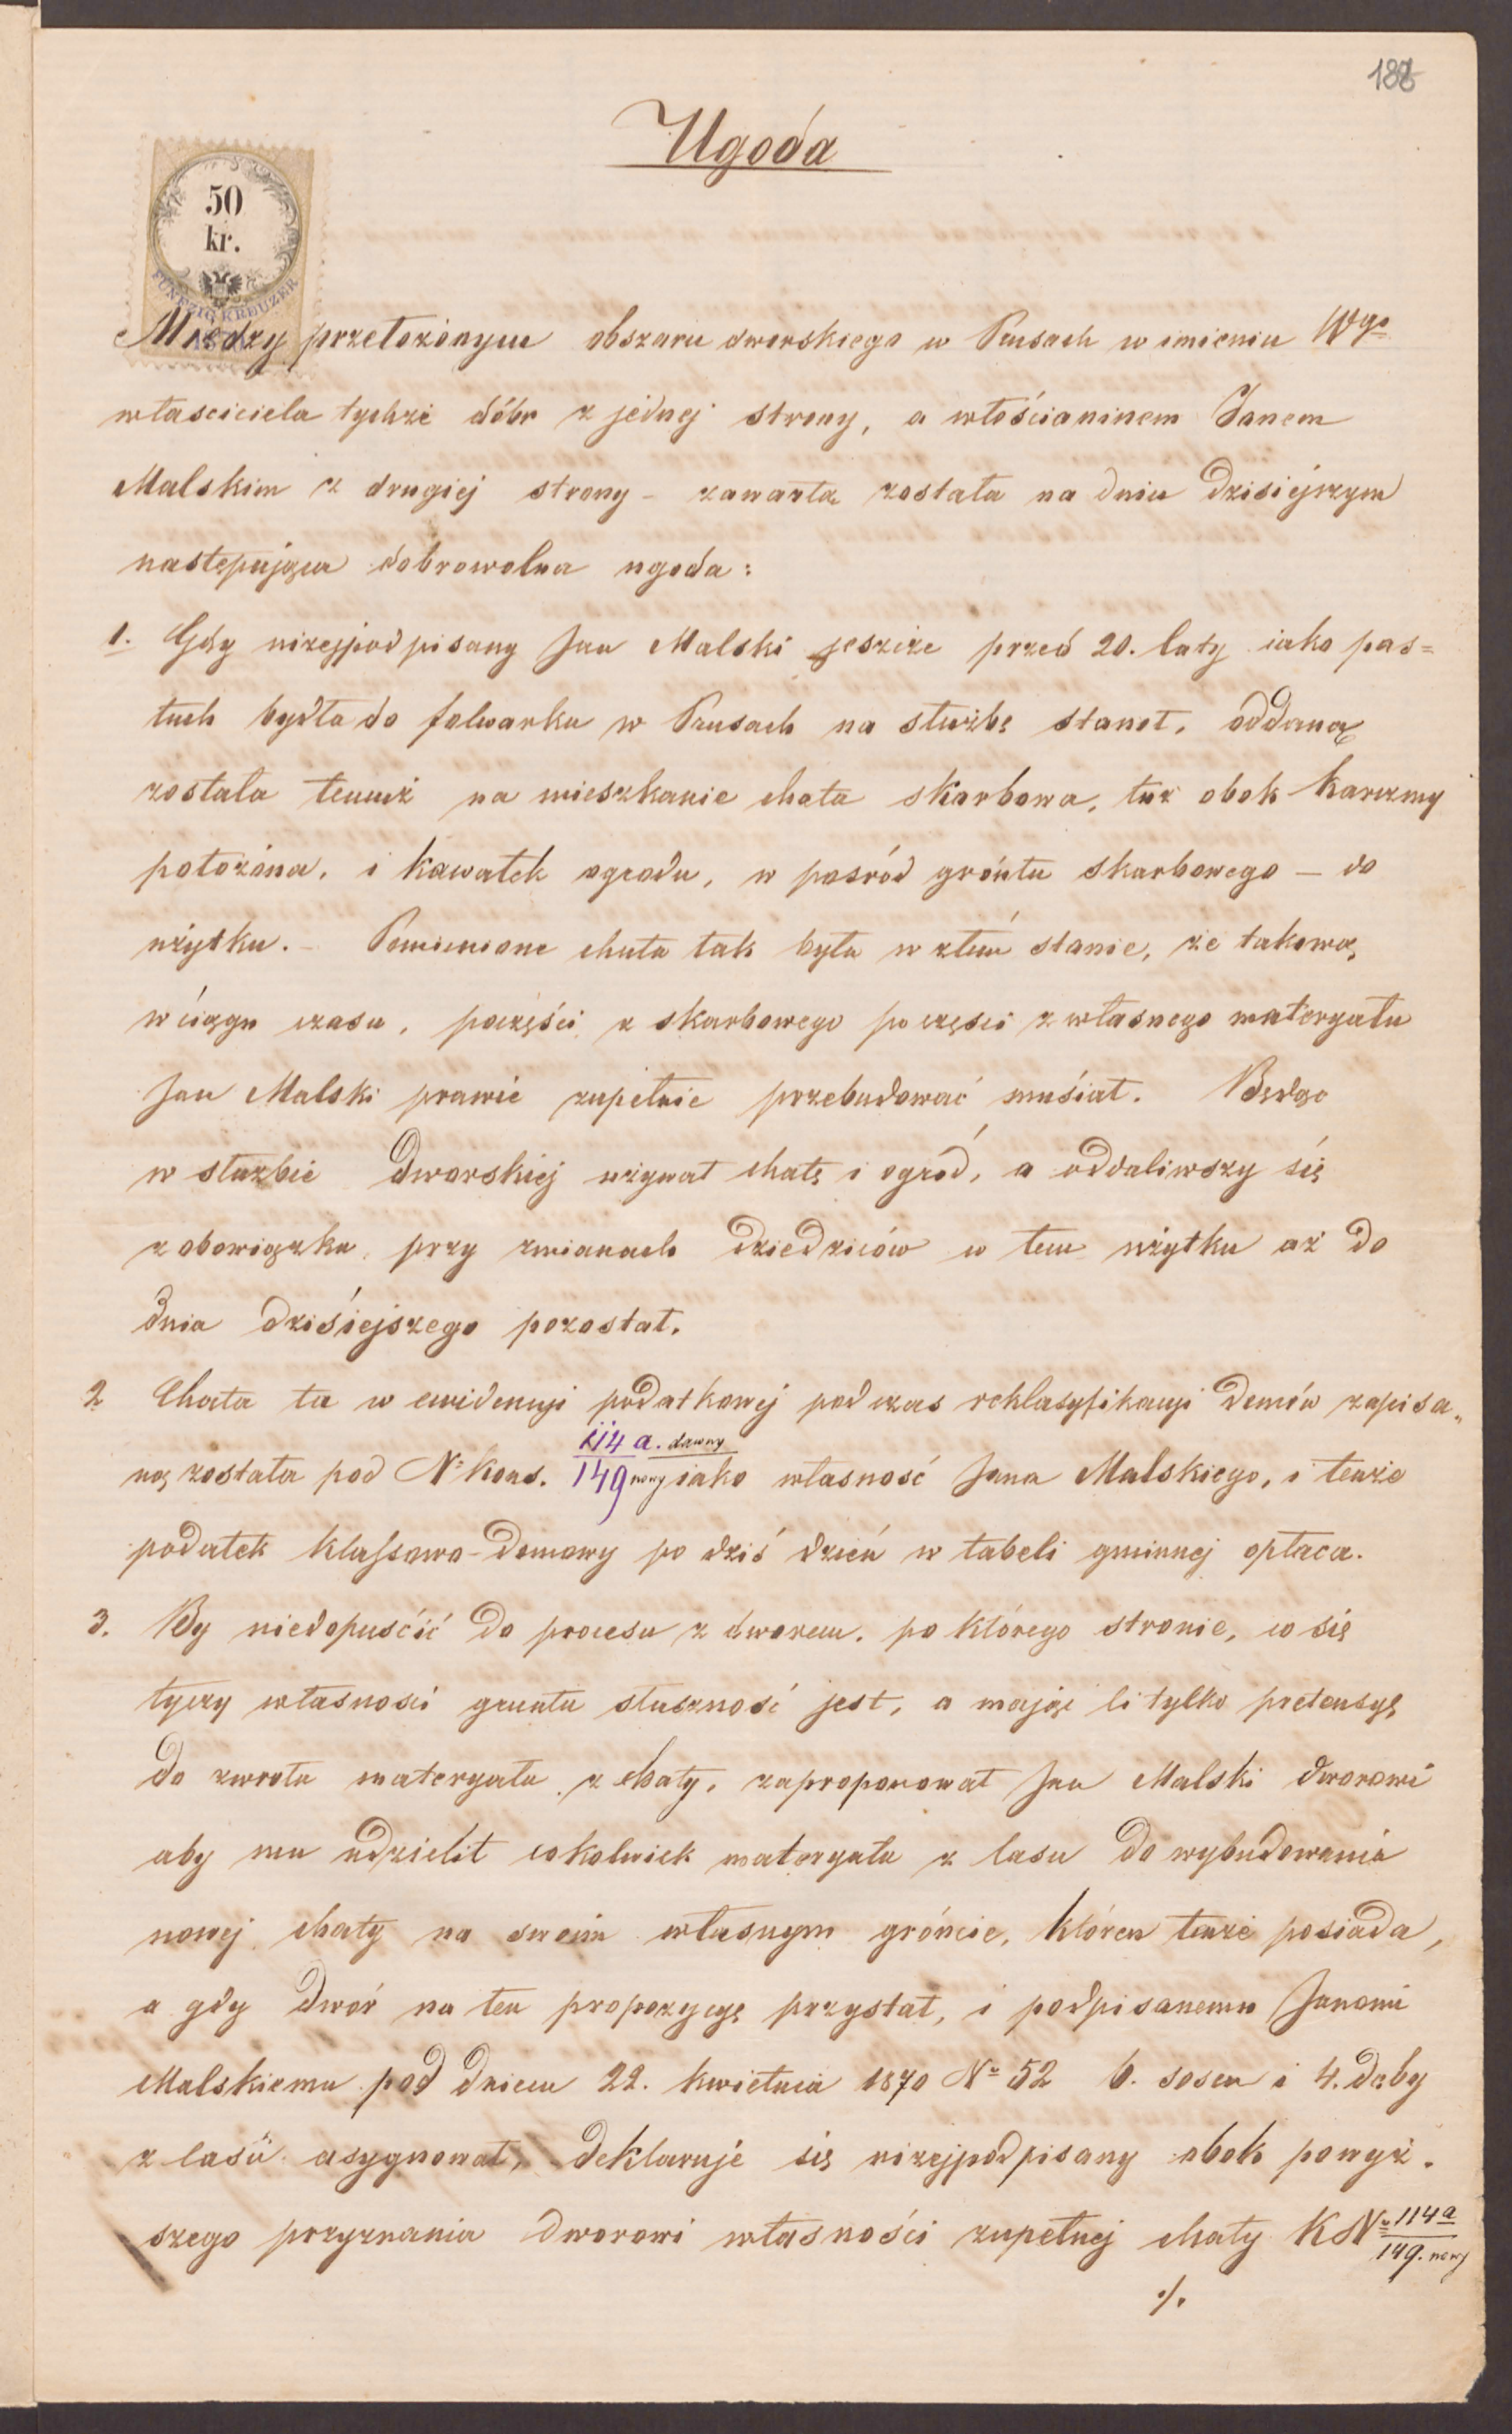 188
Ugoda
50
kr.
FÜNFZIG KREUZER
Miedzy przełożonym obszaru dworskiego w Prusach w imieniu Wgo
własciciela tychże dóbr z jednej strony, a włościaninem Janem
Malskim z drugiej strony – zawarta została na dniu dzisiejszym
następująca dobrowolna ugoda:
1. Gdy niżejpodpisany Jan Malski jeszcze przed 20. laty iako pas=
tuch bydła do folwarku w Prusach na służbę stanoł, oddaną
zostala temuż na mieszkanie chata skarbowa, tuż obok karczmy
położona, i kawałek ogrodu, w pośród gróntu skarbowego – do
użytku. – Pomienione chata tak była w złem stanie, że takową
w ciągu czasu, poczęści z skarbowego po częsci z własnego materyału
Jan Malski prawie zupełnie przebudować musiał. Będąc
w służbie dworskiej używał chatę i ogród, a oddaliwszy się
z obowiązku przy zmianach dziedziców w tem użytku aż do
dnia dziśiejszego pozostał.
2 Chata ta w ewidencji podatkowej podczas reklasyfikacyi domów zapisa„
ną została pod No Kons. 114 a. dawny
149 nowy iako własność Jana Malskiego, i tenże
podatek klassowo-domowy po dziś dzień w tabeli gminnej opłaca.
3. By niedopuśćić do procesu z dworem, po którego stronie, co się
tyczy własnosci gruntu słuszność jest, a mając li tylko pretensyę
do zwrotu materyału z chaty, zaproponował Jan Malski dworowi
aby mu udzielił cokolwiek materyału z lasu do wybudowania
nowej chaty na swem własnym gróncie, któren tenże posiada,
a gdy dwór na ten propozycyę przystał, i podpisanemu Janowi
Malskiemu pod dniem 22. kwietnia 1870 No 52 6. sosen i 4. dęby
z lasu asygnował, deklaruje się niżejpodpisany obok powyż.
szego przyznania dworowi własności zupełnej chaty KNo 114a
149. nowy
./.